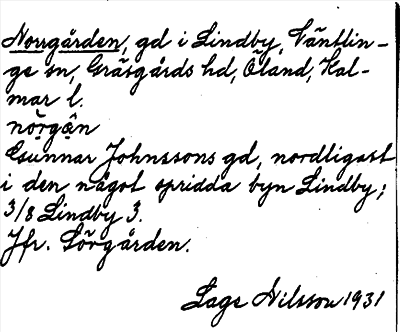 Norrgården, gd i Lindby, Väntlin-
ge sn, Gräsgårds hd, Öland, Kal-
mar l.
nọ̈rgạ̊n
Gunnar Johnssons gd, nordligast
i den något spridda byn Lindby;
3/8 Lindby 3.
Jfr. Sörgården.
Lage Nilsson 1931